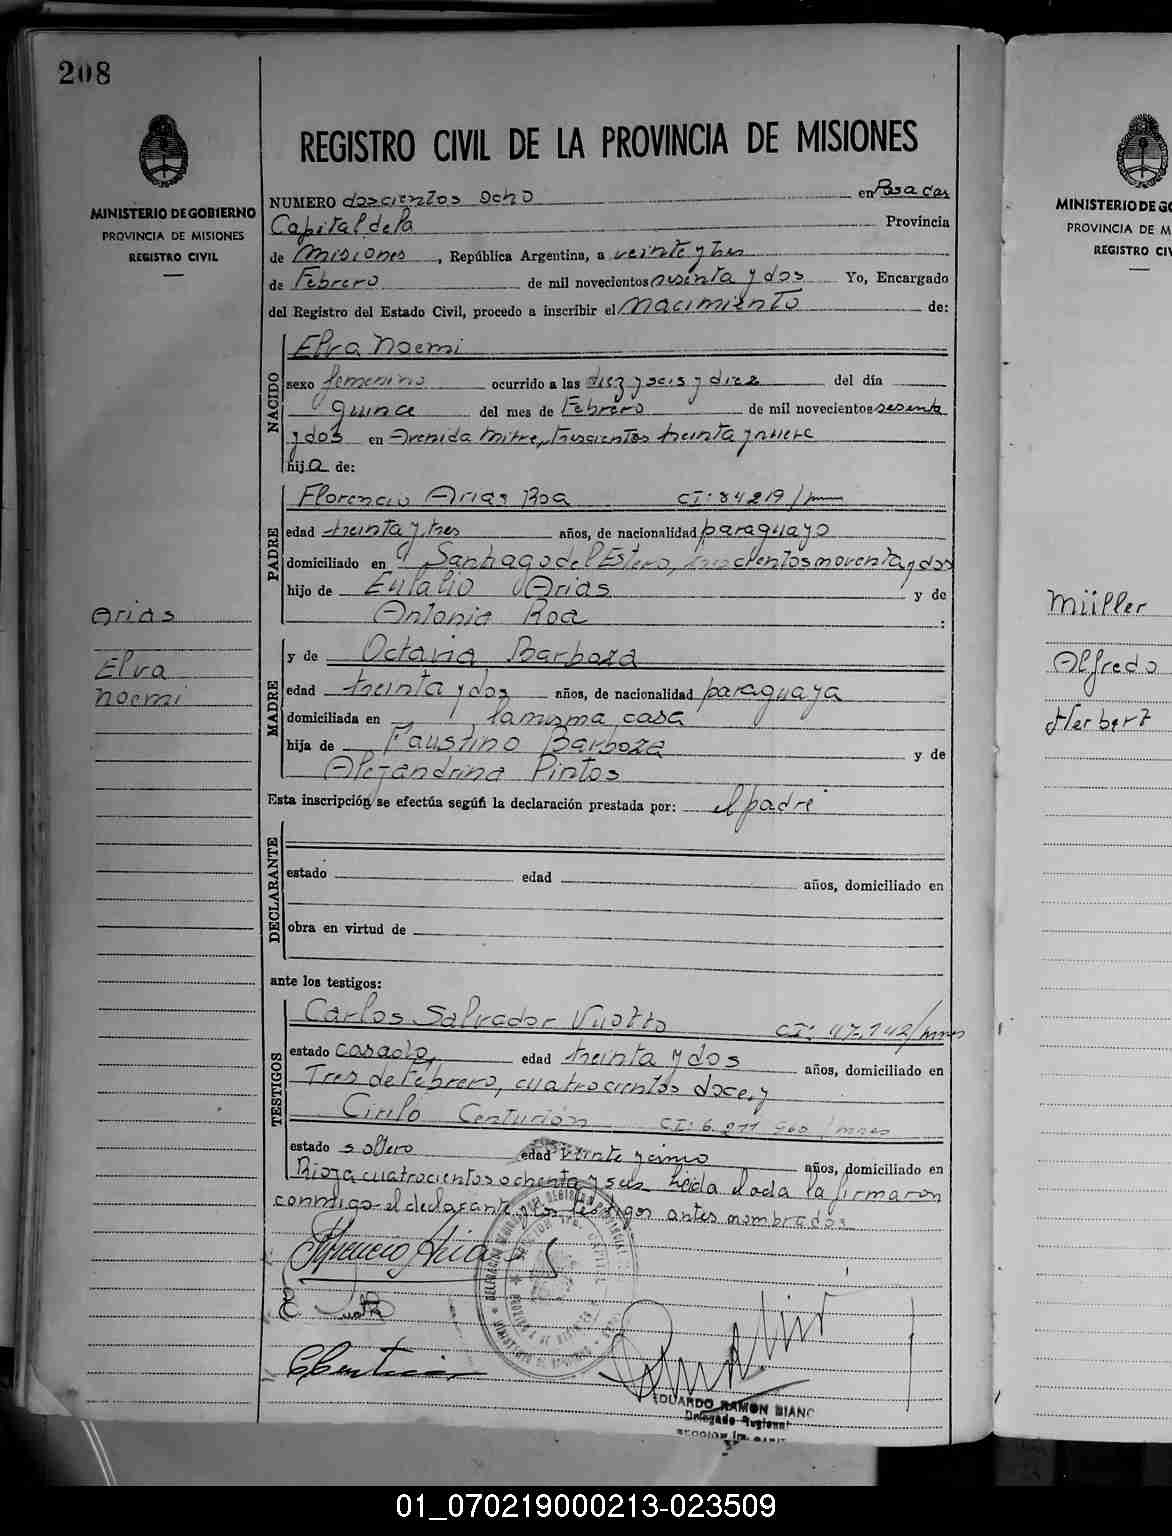 208
MINISTERIO DE GOBIERNO
PROVINCIA DE MISIONES
REGISTRO CIVIL
REGISTRO CIVIL DE LA PROVINCIA DE MISIONES
NUMERO doscientos ocho en Posadas
Capital de la Provincia
de Misiones, República Argentina, a veinte y tres
de Febrero de mil novecientos sesenta y dos Yo, Encargado
del Registro del Estado Civil, procedo a inscribir el Nacimiento de:
NACIDO
Elva Noemi
sexo femenino ocurrido a las diez y seis y diez del día
quince del mes de Febrero de mil novecientos sesenta
y dos en Avenida Mitre, trescientos treinta y nueve
hija de:
PADRE
Florencio Arias Roa CI: 84219/
edad treinta y tres años, de nacionalidad paraguayo
domiciliado en Santiago del Estero, noventa y dos
hijo de Eulalio Arias y de
Antonia Roa :
Arias
Elva
Noemi
MADRE
y de Octavia Barboza
edad treinta y dos años, de nacionalidad paraguaya
domiciliada en la misma casa
hija de Faustino Barboza y de
Alejandrina Pintos
Esta inscripción se efectúa según la declaración prestada por: el padre
DECLARANTE
estado edad años, domiciliado en
obra en virtud de
ante los testigos:
TESTIGOS
Carlos Salvador Vuotto CI: 47.142/mnes
estado casado, edad treinta y dos años, domiciliado en
Tres de Febrero, cuatrocientos doce, y
Cirilo Centurión CI: 6.211 960/mnes
estado soltero edad veinte y cinco años, domiciliado en
Rioja cuatrocientos ochenta y seis leida el acta la firmaron
conmigo el declarante y los testigos antes nombrados
Florencio Arias
EDUARDO RAMON BIANC
Delegado Regional
MINISTERIO DE GO
PROVINCIA DE M
REGISTRO CIV
Müller
Alfredo
Herbert
01_070219000213-023509